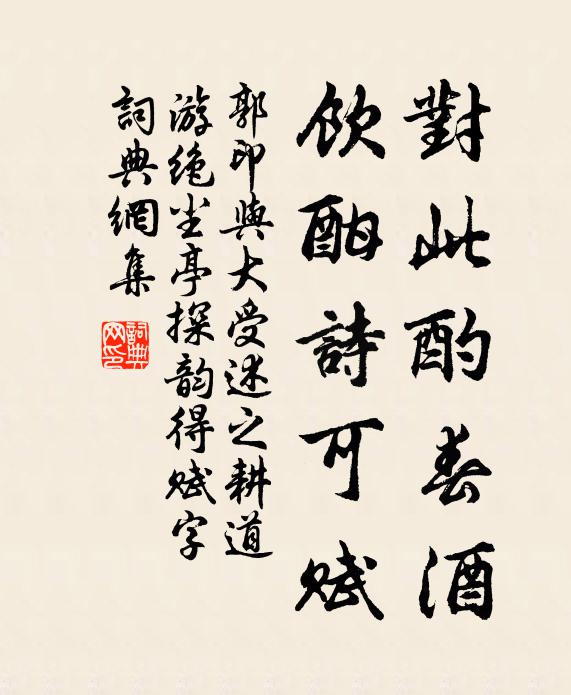 對此酌春酒
飲酣詩可賦
郭印與大受述之耕道
游絕塵亭探韵得賦字
詞典網集
詞典網印